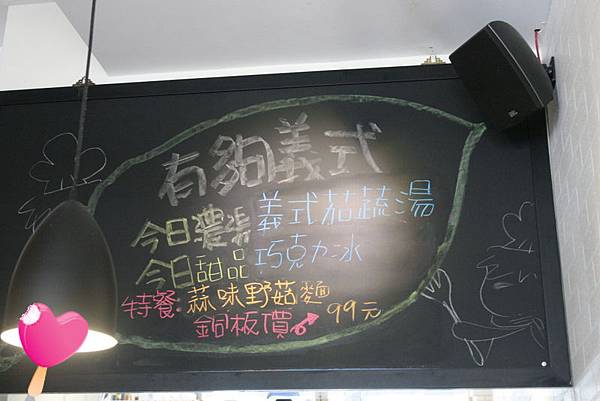 有夠義式
今日濃湯 義式茄蔬湯
今日甜品 巧克力冰
特餐 蒜味野菇麵 99元
銅板價